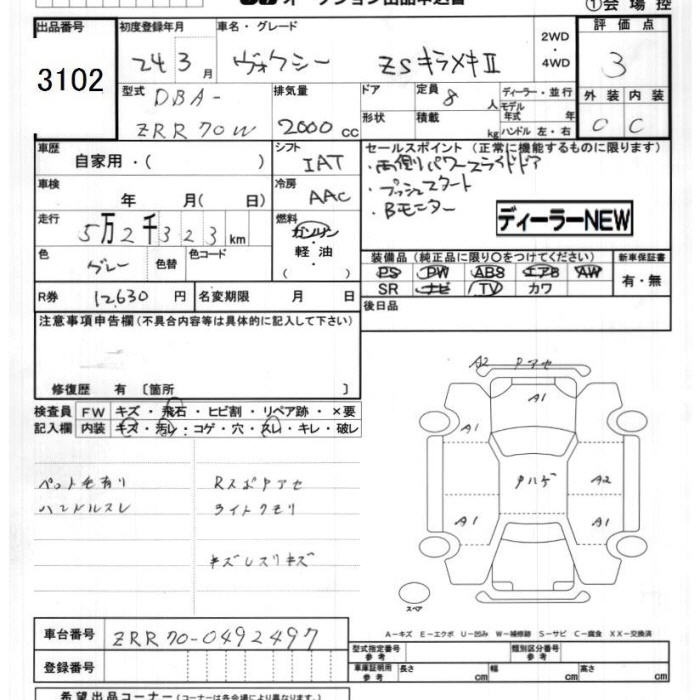 オークション出品申込書
①会場控
出品番号 初度登録年月 車名・グレード 2WD・4WD 評価点
3102 24 3月 ヴォクシー ZSキラメキⅡ 3
型式 排気量 ドア 定員 8 人 ディーラー・並行 外装 内装
DBA- モデル年式 年
ZRR70W 2000cc 形状 積載 kg ハンドル 左・右 C C
車歴 シフト セールスポイント(正常に機能するものに限ります)
自家用・( ) IAT ・両側パワースライドドア
車検 冷房 ・プッシュスタート
年 月( 日) AAC ・Bモニター
走行 燃料 ディーラーNEW
5万2千323km ガソリン
軽油
( )
色 色替 色コード 装備品(純正品に限り○をつけてください) 新車保証書
グレー PS PW ABS エアB AW 有・無
SR ナビ TV カワ
R券 12,630円 名変期限 月 日 後日品
注意事項申告欄(不具合内容等は具体的に記入して下さい)
修復歴 有〔箇所 〕
検査員 FW キズ・飛石・ヒビ割・リペア跡・×要
記入欄 内装 キズ・汚レ・コゲ・穴・スレ・キレ・破レ
A2 Pアセ
A1
A1
ペット毛有り RスポPアセ Pハゲ A2
ハンドルスレ ライトクモリ
A1 A1
キズレスリキズ
スペア
A-キズ E-エクボ U-凹み W-補修跡 S-サビ C-腐食 XX-交換済
車台番号 ZRR70-0492497
型式指定番号 参考 類別区分番号 参考
登録番号 車庫証明用 参考 長さ cm 幅 cm 高さ cm
希望出品コーナー(コーナーは各会場により異なります。)